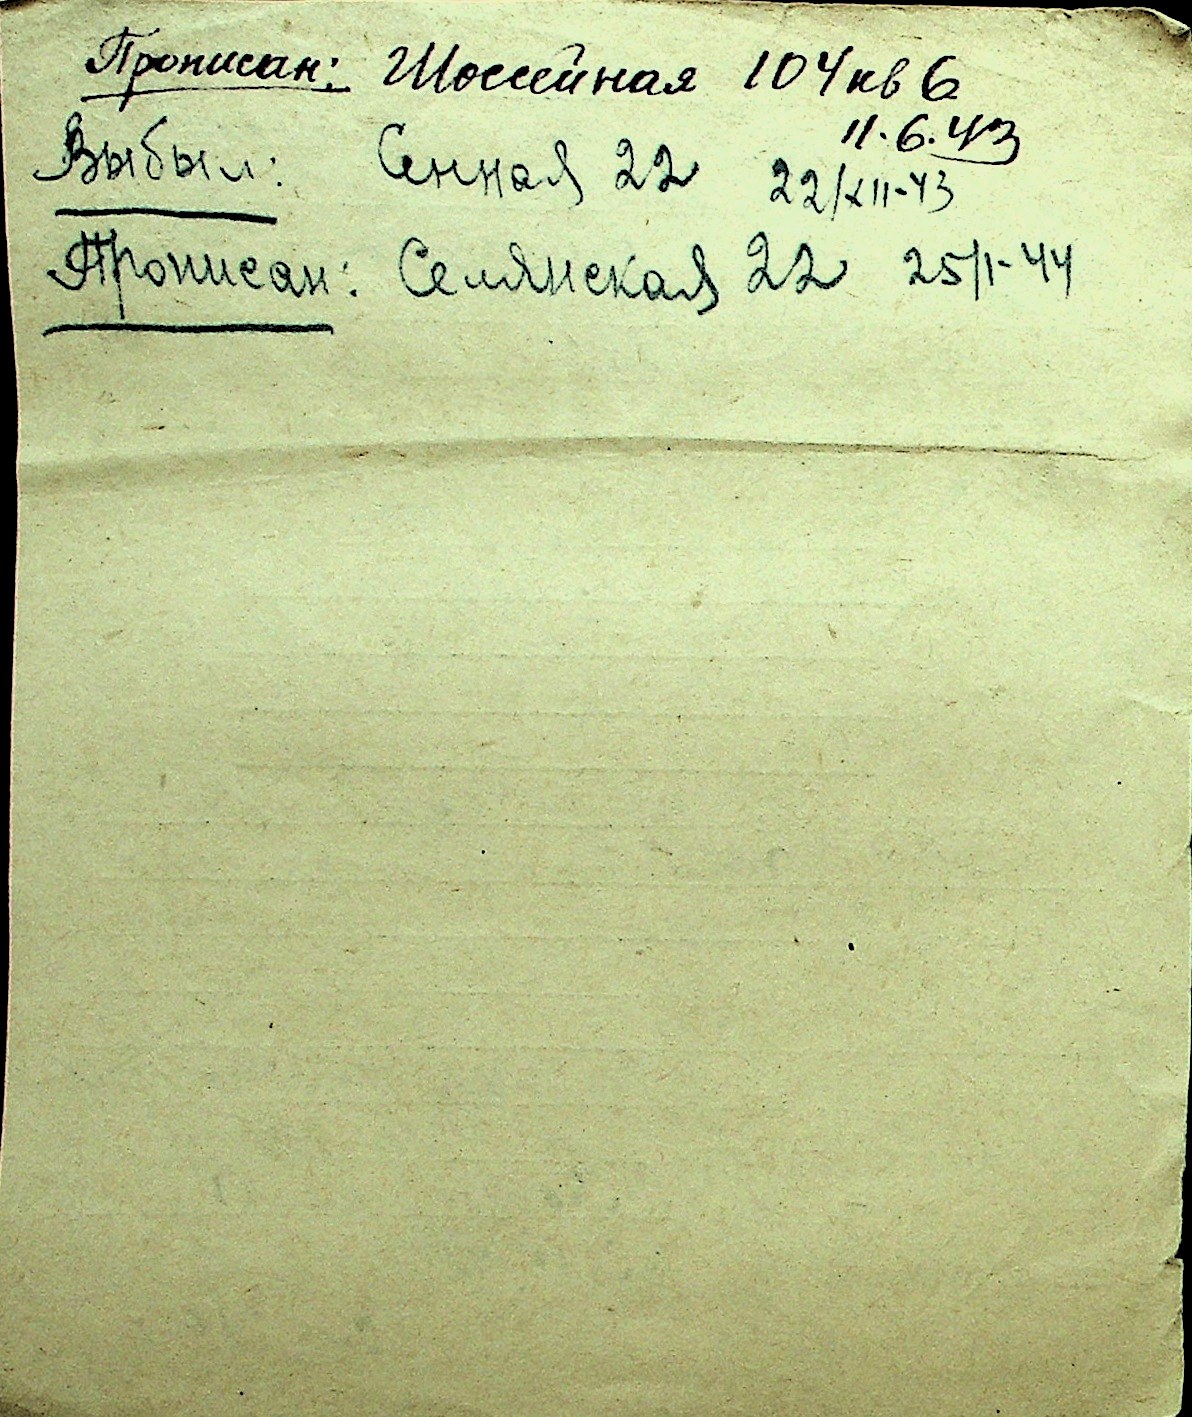 Прописан: Шоссейная 104 кв 6
11.6.43
Выбыл: Сенная 22 22/XII-43
Прописан: Селянская 22 25/I-44